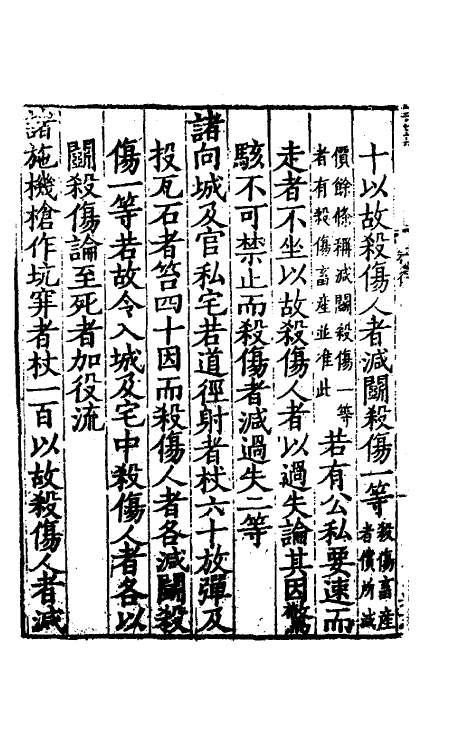 十以故殺傷人者減鬭殺傷一等殺傷畜産者償所減
價餘條稱減鬭殺傷一等者有殺傷畜産並准此若有公私要速而
走者不坐以故殺傷人者以過失論其因驚
駭不可禁止而殺傷者減過失二等
諸向城及官私宅若道徑射者杖六十放彈及
投瓦石者笞四十因而殺傷人者各減鬭殺
傷一等若故令入城及宅中殺傷人者各以
鬭殺傷論至死者加役流
諸施機槍作坑穽者杖一百以故殺傷人者減